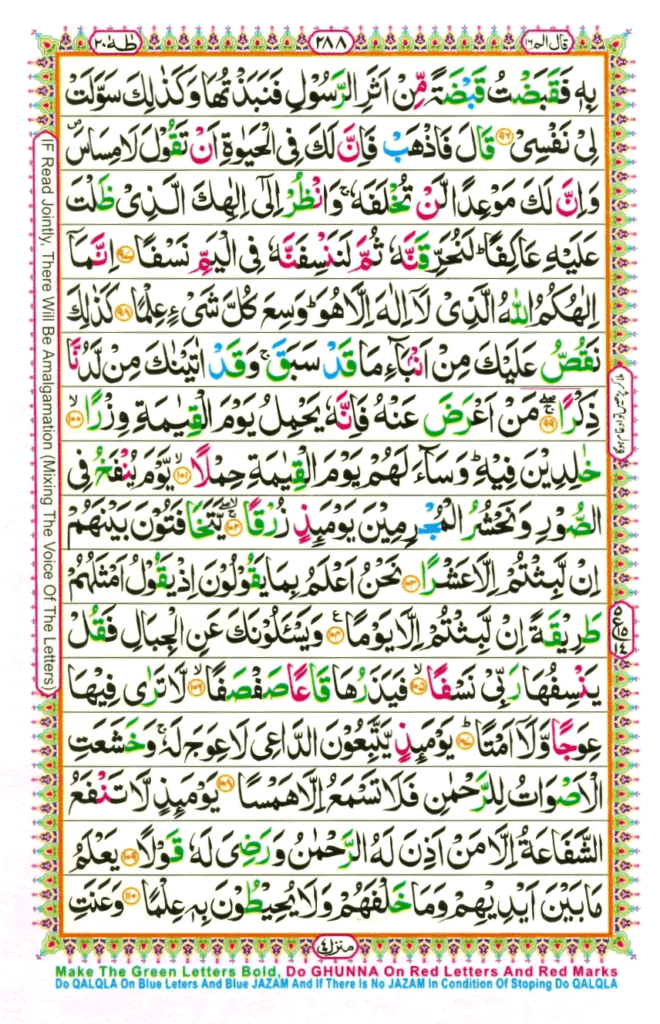 قال الم ١٦
٢٨٨
طٰهٰ ٢٠
بِهٖ فَقَبَضْتُ قَبْضَةً مِّنْ اَثَرِ الرَّسُوْلِ فَنَبَذْتُهَا وَكَذٰلِكَ سَوَّلَتْ
لِیْ نَفْسِیْ ﴿۹۶﴾ قَالَ فَاذْهَبْ فَاِنَّ لَكَ فِی الْحَیٰوةِ اَنْ تَقُوْلَ لَا مِسَاسَ ۪
وَاِنَّ لَكَ مَوْعِدًا لَّنْ تُخْلَفَهٗ ۚ وَانْظُرْ اِلٰۤی اِلٰهِكَ الَّذِیْ ظَلْتَ
عَلَیْهِ عَاكِفًا ؕ لَنُحَرِّقَنَّهٗ ثُمَّ لَنَنْسِفَنَّهٗ فِی الْیَمِّ نَسْفًا ﴿۹۷﴾ اِنَّمَاۤ
اِلٰهُكُمُ اللّٰهُ الَّذِیْ لَاۤ اِلٰهَ اِلَّا هُوَ ؕ وَسِعَ كُلَّ شَیْءٍ عِلْمًا ﴿۹۸﴾ كَذٰلِكَ
نَقُصُّ عَلَیْكَ مِنْ اَنْۢبَآءِ مَا قَدْ سَبَقَ ۚ وَقَدْ اٰتَیْنٰكَ مِنْ لَّدُنَّا
ذِكْرًا ﴿۹۹﴾ ۖۚ مَنْ اَعْرَضَ عَنْهُ فَاِنَّهٗ یَحْمِلُ یَوْمَ الْقِیٰمَةِ وِزْرًا ﴿۱۰۰﴾ ۙ
خٰلِدِیْنَ فِیْهِ ؕ وَسَآءَ لَهُمْ یَوْمَ الْقِیٰمَةِ حِمْلًا ﴿۱۰۱﴾ ۙ یَّوْمَ یُنْفَخُ فِی
الصُّوْرِ وَنَحْشُرُ الْمُجْرِمِیْنَ یَوْمَئِذٍ زُرْقًا ﴿۱۰۲﴾ ۚۖ یَّتَخَافَتُوْنَ بَیْنَهُمْ
اِنْ لَّبِثْتُمْ اِلَّا عَشْرًا ﴿۱۰۳﴾ نَحْنُ اَعْلَمُ بِمَا یَقُوْلُوْنَ اِذْ یَقُوْلُ اَمْثَلُهُمْ
طَرِیْقَةً اِنْ لَّبِثْتُمْ اِلَّا یَوْمًا ﴿۱۰۴﴾ ع وَیَسْـَٔلُوْنَكَ عَنِ الْجِبَالِ فَقُلْ
یَنْسِفُهَا رَبِّیْ نَسْفًا ﴿۱۰۵﴾ ۙ فَیَذَرُهَا قَاعًا صَفْصَفًا ﴿۱۰۶﴾ ۙ لَّا تَرٰی فِیْهَا
عِوَجًا وَّلَاۤ اَمْتًا ﴿۱۰۷﴾ ؕ یَوْمَئِذٍ یَّتَّبِعُوْنَ الدَّاعِیَ لَا عِوَجَ لَهٗ ۚ وَخَشَعَتِ
الْاَصْوَاتُ لِلرَّحْمٰنِ فَلَا تَسْمَعُ اِلَّا هَمْسًا ﴿۱۰۸﴾ یَوْمَئِذٍ لَّا تَنْفَعُ
الشَّفَاعَةُ اِلَّا مَنْ اَذِنَ لَهُ الرَّحْمٰنُ وَرَضِیَ لَهٗ قَوْلًا ﴿۱۰۹﴾ یَعْلَمُ
مَا بَیْنَ اَیْدِیْهِمْ وَمَا خَلْفَهُمْ وَلَا یُحِیْطُوْنَ بِهٖ عِلْمًا ﴿۱۱۰﴾ وَعَنَتِ
منزل ٤
IF Read Jointly, There Will Be Amalgamation (Mixing The Voice Of The Letters)
Make The Green Letters Bold, Do GHUNNA On Red Letters And Red Marks
Do QALQLA On Blue Leters And Blue JAZAM And If There Is No JAZAM In Condition Of Stoping Do QALQLA